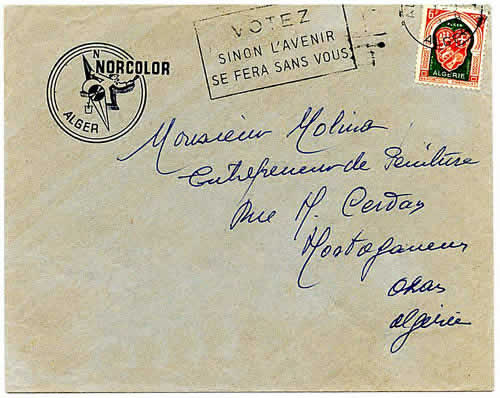 VOTEZ
SINON L'AVENIR
SE FERA SANS VOUS
N
NORCOLOR
ALGER
ALGER
ALGERIE
Monsieur Molina
Entrepreneur de Peinture
Rue M. Cerdan
Mostaganem
Oran
Algérie